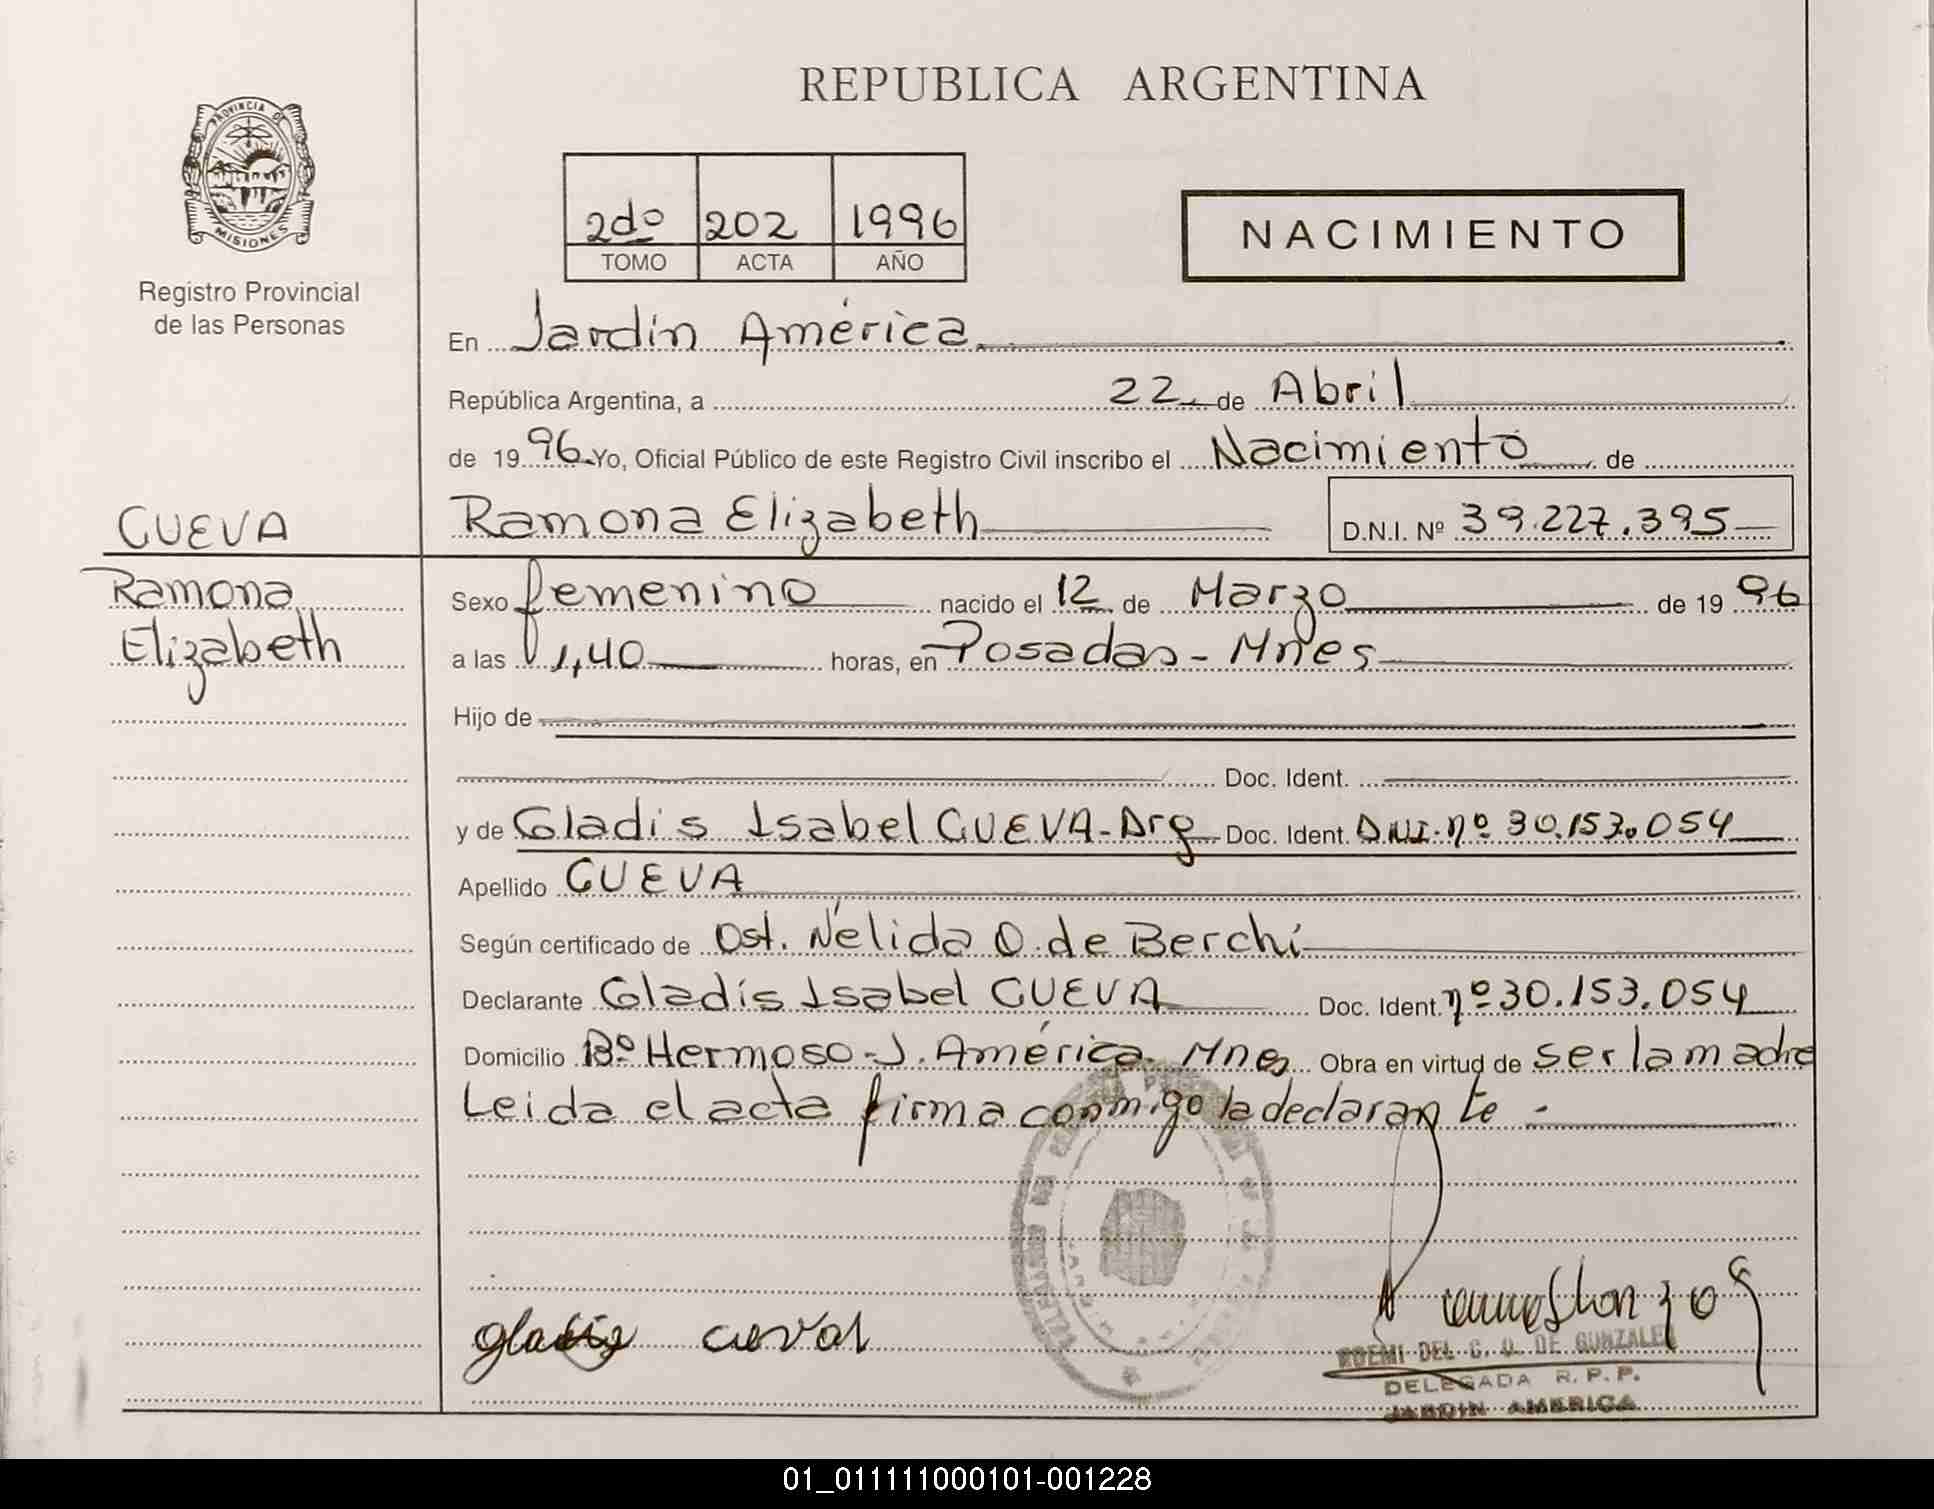 REPUBLICA ARGENTINA
PROVINCIA DE
MISIONES
Registro Provincial
de las Personas
2do 202 1996
TOMO ACTA AÑO
NACIMIENTO
En Jardín América
República Argentina, a 22 de Abril
de 1996 Yo, Oficial Público de este Registro Civil inscribo el Nacimiento de
CUEVA
Ramona Elizabeth D.N.I. Nº 39.227.395
Ramona
Elizabeth
Sexo femenino nacido el 12 de Marzo de 1996
a las 1,40 horas, en Posadas - Mnes
Hijo de
Doc. Ident.
y de Gladis Isabel CUEVA - Arg Doc. Ident. D.N.I. nº 30.153.054
Apellido CUEVA
Según certificado de Ost. Nélida O. de Berchi
Declarante Gladis Isabel CUEVA Doc. Ident. nº 30.153.054
Domicilio Bº Hermoso - J. América - Mnes Obra en virtud de ser la madre
Leida el acta firma conmigo la declarante -
gladis cueva
NOEMI DEL C. O. DE GONZALEZ
DELEGADA R.P.P.
JARDIN AMERICA
01_011111000101-001228